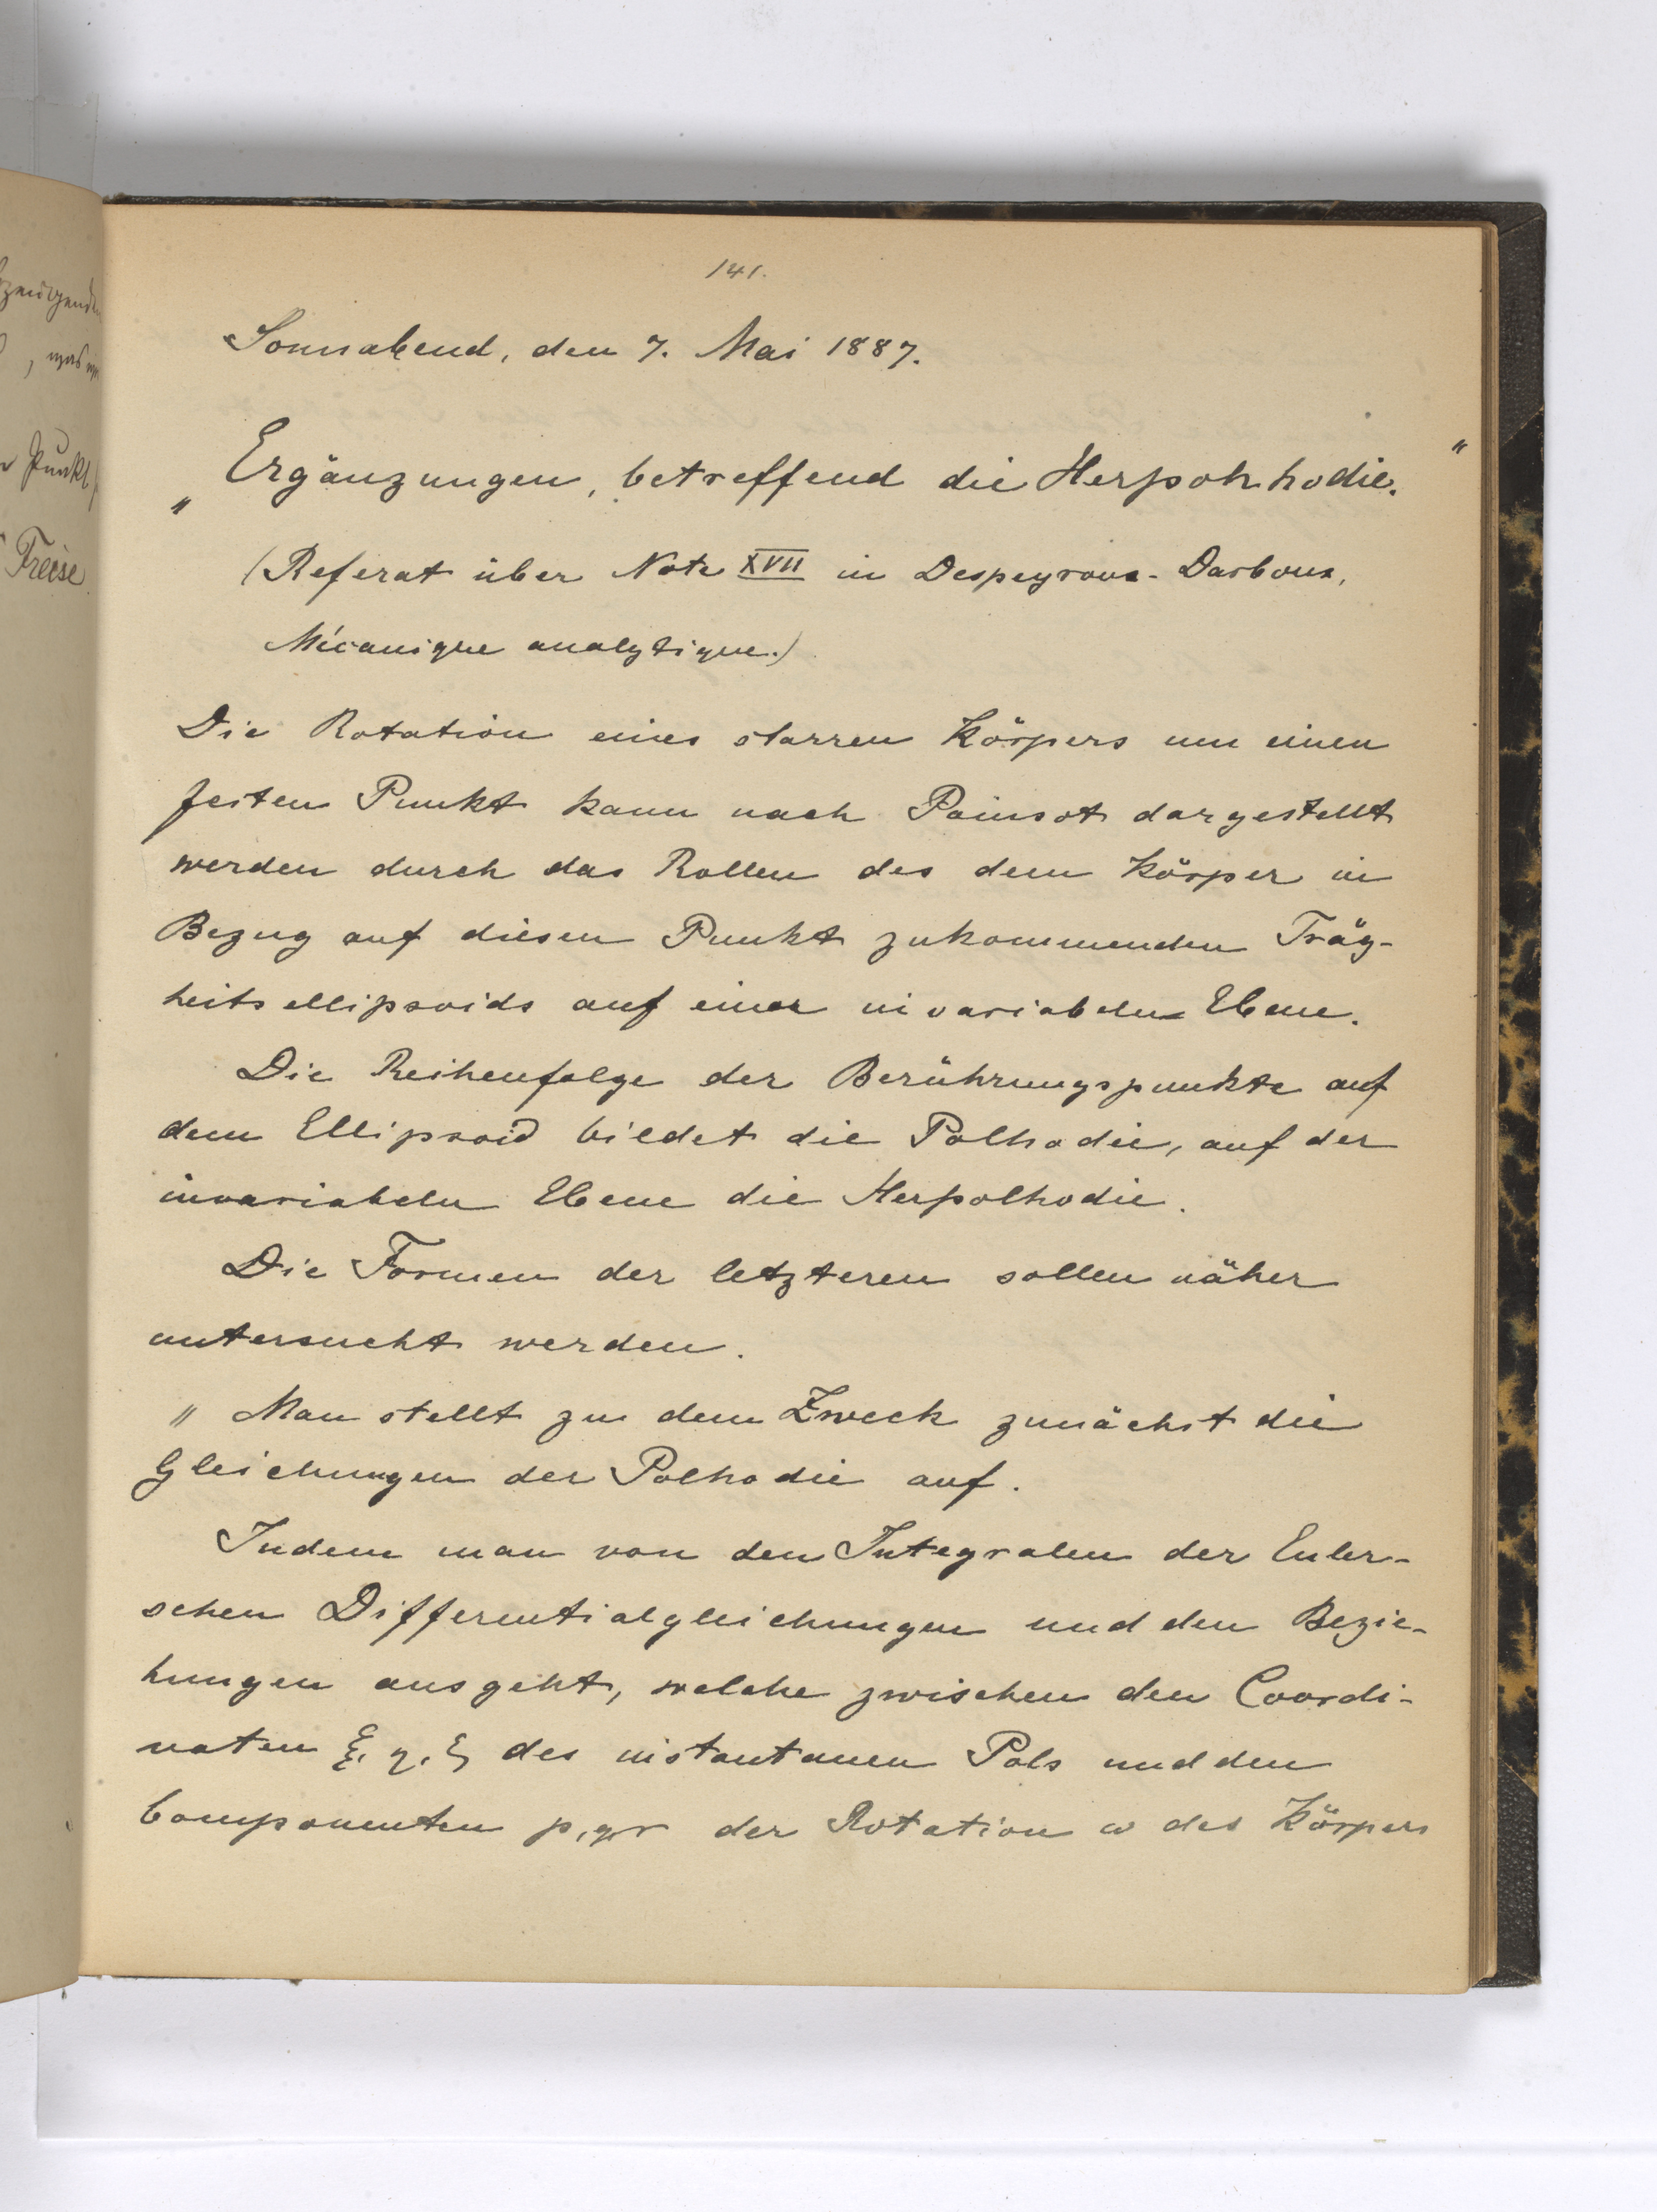 141.
Sonnabend, den 7. Mai 1887.
„Ergänzungen, betreffend die Herpolhodie."
(Referat über Note XVII in Despeyrous-Darboux,
Mécanique analytique.)
Die Rotation eines starren Körpers um einen
festen Punkt kann nach Poinsot dargestellt
werden durch das Rollen des dem Körper in
Bezug auf diesen Punkt zukommenden Träg-
heitsellipsoids auf einer invariabeln Ebene.
Die Reihenfolge der Berührungspunkte auf
dem Ellipsoid bildet die Polhodie, auf der
invariabeln Ebene die Herpolhodie.
Die Formen der letzteren sollen näher
untersucht werden.
" Man stellt zu dem Zweck zunächst die
Gleichungen der Polhodie auf.
Indem man von den Integralen der Euler-
schen Differentialgleichungen und den Bezie-
hungen ausgeht, welche zwischen den Coordi-
naten ξ, η, ζ des instantanen Pols und den
Componenten p, q, r der Rotation ω des Körpers
zeugend
, was
Punkt
Kreise